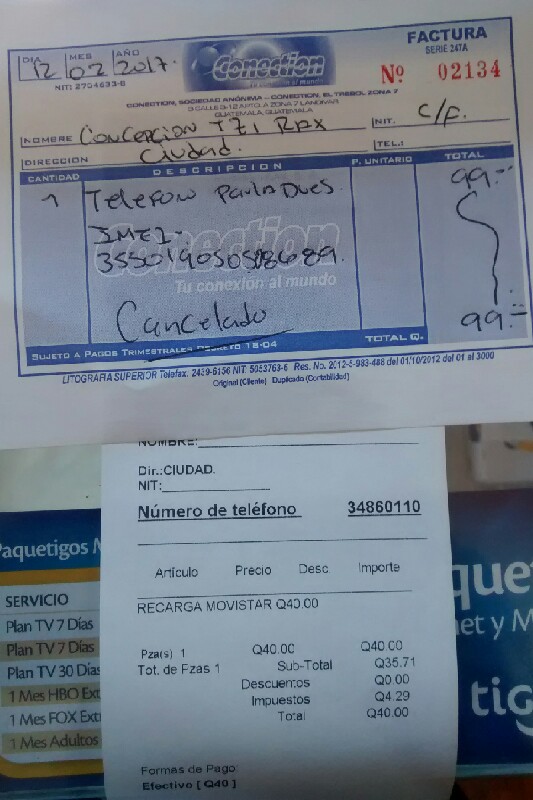 DIA MES AÑO
12 02 2017.
NIT: 2704633-8
Conection
FACTURA
SERIE 247A
Nº 02134
CONECTION, SOCIEDAD ANÓNIMA - CONECTION, EL TREBOL ZONA 7
GUATEMALA, GUATEMALA
NOMBRE CONCEPCION
NIT. C/F.
DIRECCION Ciudad.
TEL.:
CANTIDAD DESCRIPCION P. UNITARIO TOTAL
1 TELEFON 99.-
IMEI-
Conection
Tu conexión al mundo
Cancelado 99.-
SUJETO A PAGOS TRIMESTRALES DECRETO 18-04 TOTAL Q.
LITOGRAFIA SUPERIOR Telefax. 2439-6156 NIT: 5053763-6 Res. No. 2012-5-983-486 del 01/10/2012 del 01 al 3000
Original (Cliente) Duplicado (Contabilidad)
NOMBRE:
Dir.:CIUDAD.
NIT:
Número de teléfono 34860110
Artículo Precio Desc Importe
RECARGA MOVISTAR Q40.00
Pza(s) 1 Q40.00 Q40.00
Tot. de Pzas 1 Sub-Total Q35.71
Descuentos Q0.00
Impuestos Q4.29
Total Q40.00
Formas de Pago:
Efectivo [ Q40 ]
Paquetigos
SERVICIO
Plan TV 7 Días
Plan TV 7 Días
Plan TV 30 Días
1 Mes HBO Ext
1 Mes FOX Ext
1 Mes Adultos
que
et y M
tig